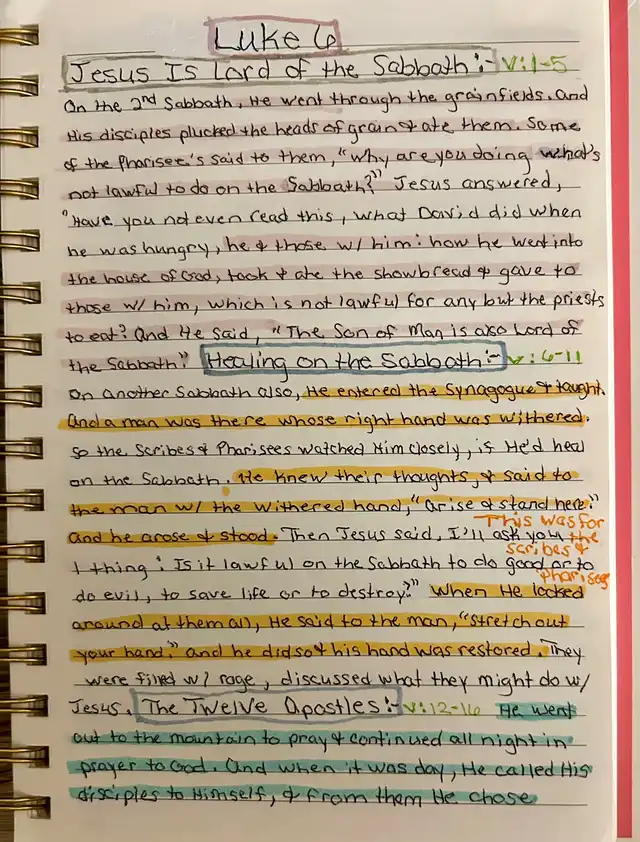 Luke 6
Jesus Is Lord of the Sabbath:- v:1-5
On the 2nd Sabbath, He went through the grainfields. And
His disciples plucked the heads of grain & ate them. Some
of the Pharisee's said to them, "Why are you doing what's
not lawful to do on the Sabbath?" Jesus answered,
"Have you not even read this, what David did when
he was hungry, he & those w/ him: how he went into
the house of God, took & ate the showbread & gave to
those w/ him, which is not lawful for any but the priests
to eat? And He said, "The Son of Man is also Lord of
the Sabbath." Healing on the Sabbath:- v:6-11
On another Sabbath also, He entered the synagogue & taught.
And a man was there whose right hand was withered.
So the Scribes & Pharisees watched Him closely, if He'd heal
on the Sabbath. He knew their thoughts, & said to
the man w/ the withered hand, "Arise & stand here."
And he arose & stood. Then Jesus said, I'll ask you
This was for
the
scribes &
pharisees
1 thing: Is it lawful on the Sabbath to do good or to
do evil, to save life or to destroy?" When He looked
around at them all, He said to the man, "Stretch out
your hand." and he did so & his hand was restored. They
were filled w/ rage, discussed what they might do w/
Jesus. The Twelve Apostles:- v:12-16 He went
out to the mountain to pray & continued all night in
prayer to God. And when it was day, He called His
disciples to Himself, & from them He chose